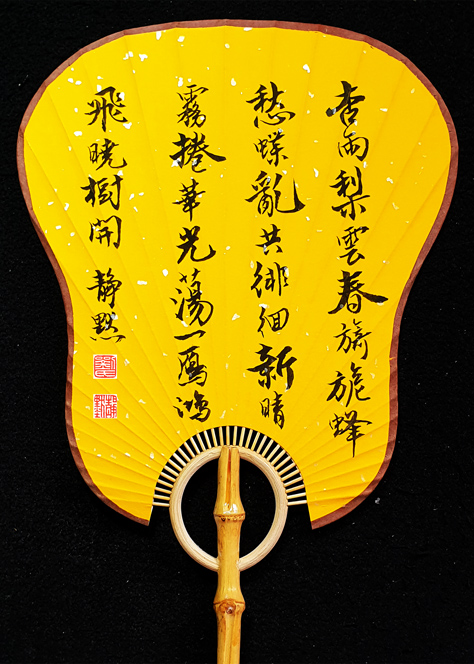 杏雨梨雲春旖旎蜂
愁蝶亂共徘徊新晴
霧捲華光蕩一鴈鴻
飛曉樹開 靜默